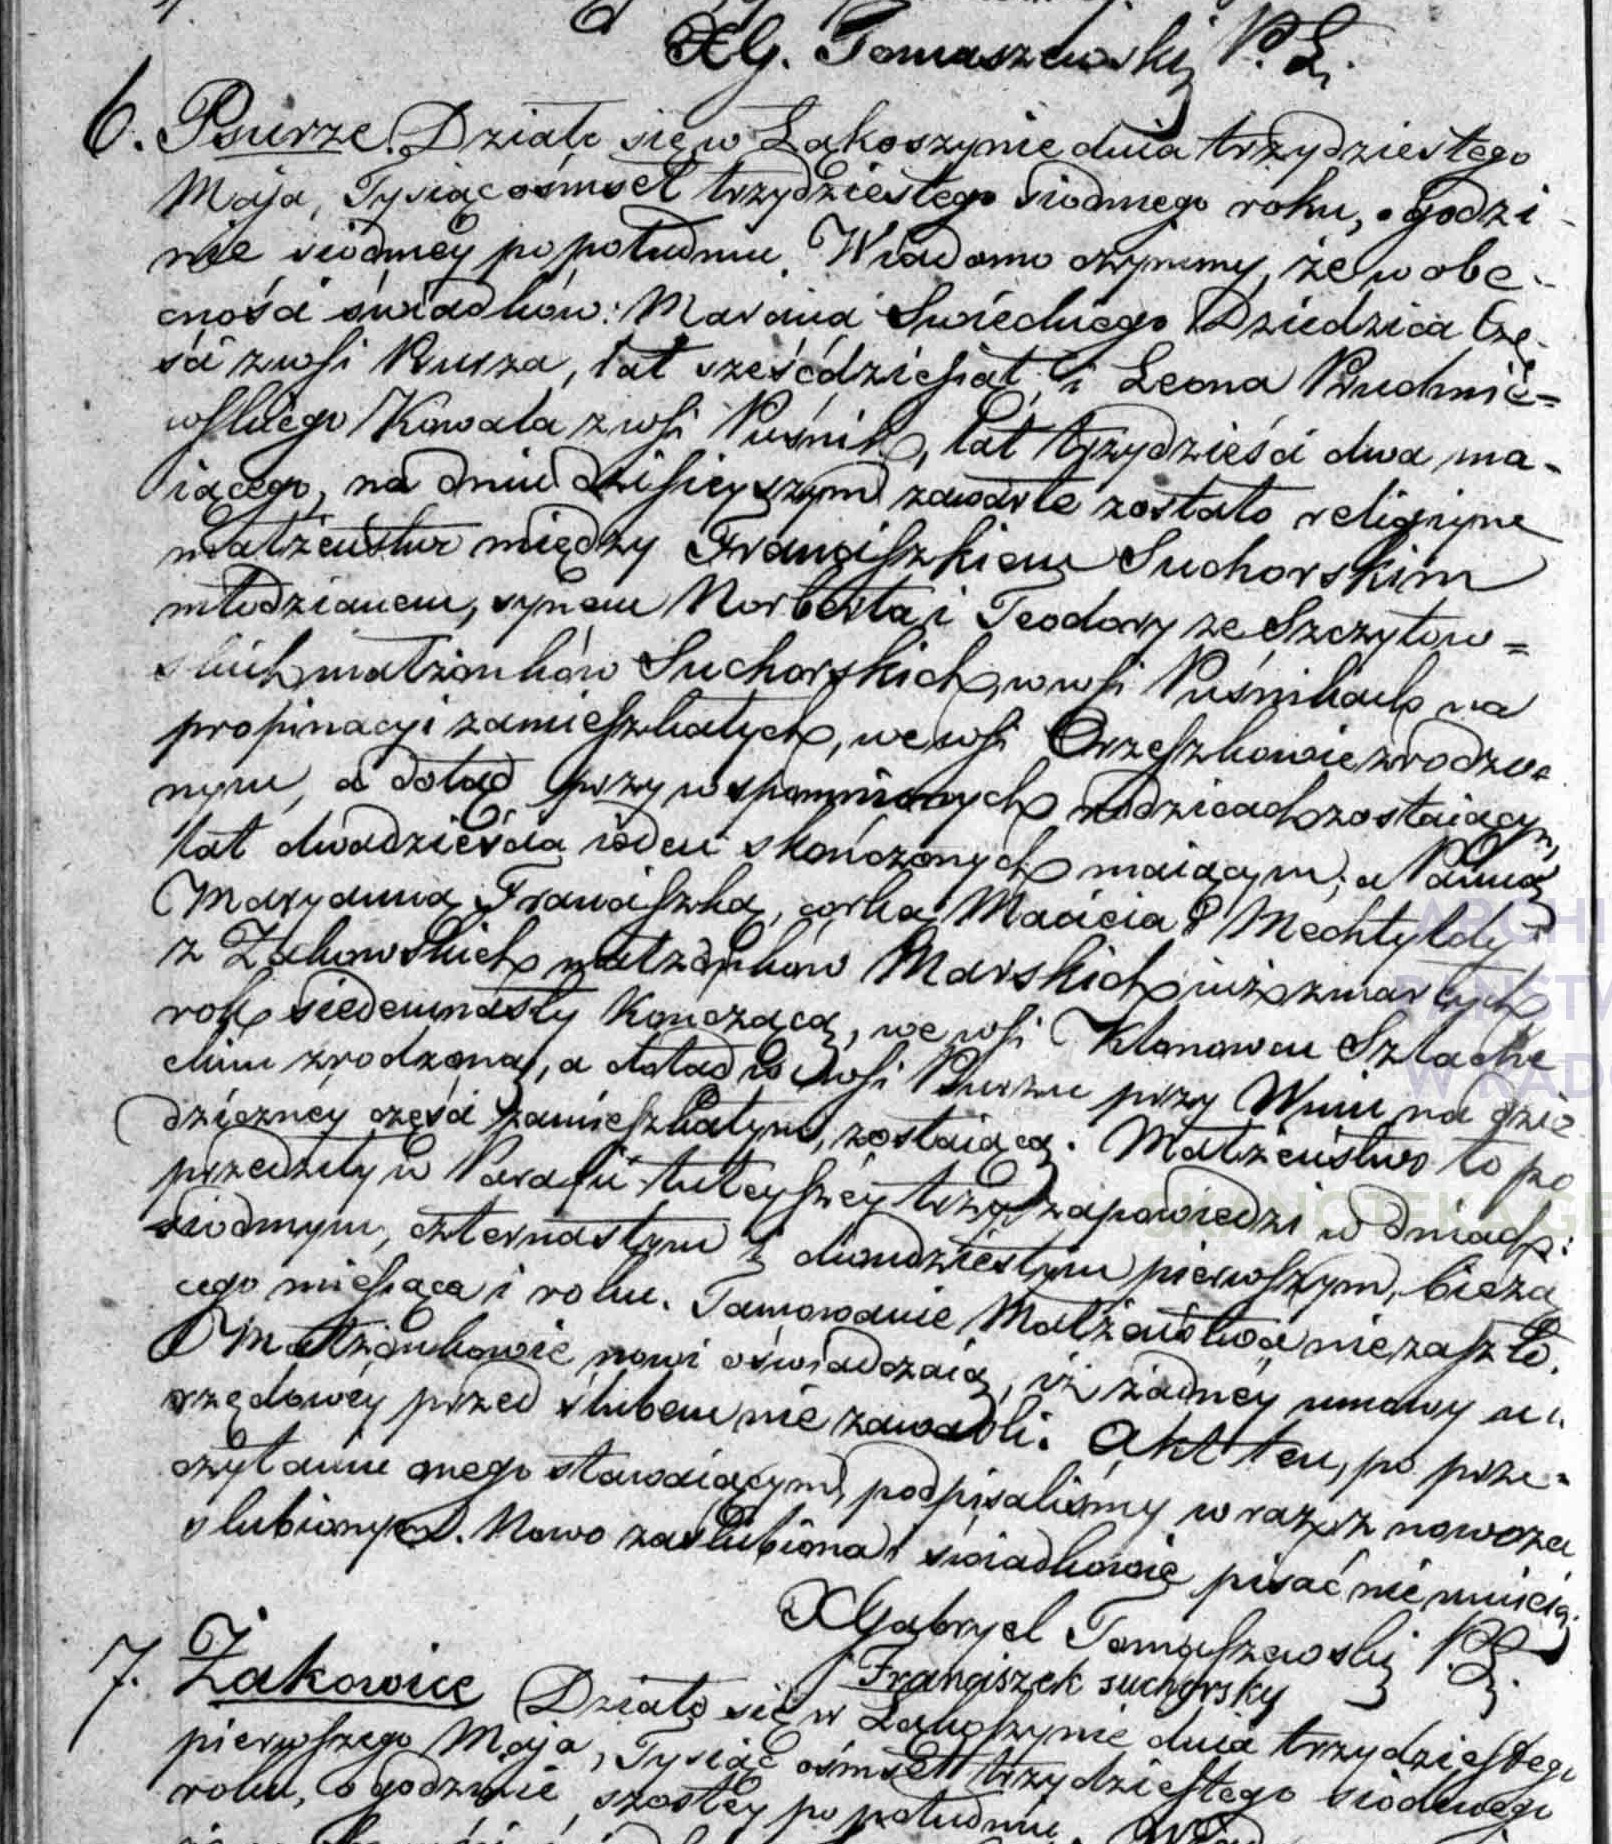 XG. Tomaszewski P. Ł.
6. Psurze. Działo się w Łąkoszynie dnia trzydziestego
Maja, Tysiąc ośmset trzydziestego siodmego roku, o godzi-
nie siodmey po południu. Wiadomo czynimy, że w obe-
cności świadków: Marcina Swieckiego Dziedzica Czę-
ści z wsi Psurza, lat sześćdziesiąt, i Leona Pruchnie=
wskiego Kowala z wsi Puśnik, lat trzydzieści dwa ma-
iącego, na dniu dzisieyszym zawarte zostało religijne
małżeństwo między Franciszkiem Suchorskim
młodzianem, synem Norberta i Teodory ze Szczytow=
skich małżonków Suchorskich, w wsi Puśnikach na
propinacyi zamieszkałych, we wsi Orzeszkowie zrodzo-
nym, a dotąd przy wspomnionych rodzicach zostaiącym,
lat dwadzieścia ieden skończonych maiącym; a Panną
Maryanną Franciszką, córką Macieia i Mechtyldy
z Żukowskich małżonków Marskich iuż zmarłych
rok siedemnasty kończącą, we wsi Klonowcu Szlache
ckim zrodzoną, a dotąd w wsi Psurzu przy Wuiu na dzie
dziczney części zamieszkałym, zostaiącą. Małżeństwo to po
przedziły w Parafii tuteyszéy trzy zapowiedzi w dniach:
siodmym, czternastym i dwudziestym pierwszym, bieżą
cego miesiąca i roku. Tamowanie Małżeństwa nie zaszło.
Małżonkowie nowi oświadczaią, iż żadnéy umowy u-
rzędowéy przed ślubem nie zawarli. Akt ten, po prze-
czytaniu onego stawaiącym, podpisaliśmy wraz z nowoza
ślubionym. Nowo zaślubiona i świadkowie pisać nie umieią.
XGabryel Tomaszewski P. Ł.
Franciszek suchorsky
7. Żakowice Działo się w Łąkoszynie dnia trzydziestego
pierwszego Maja, Tysiąc ośmset trzydziestego siodmego
roku, o godzinie szostey po południu
ARCHI
PAŃSTW
W RAD
SKANOTEKA GE